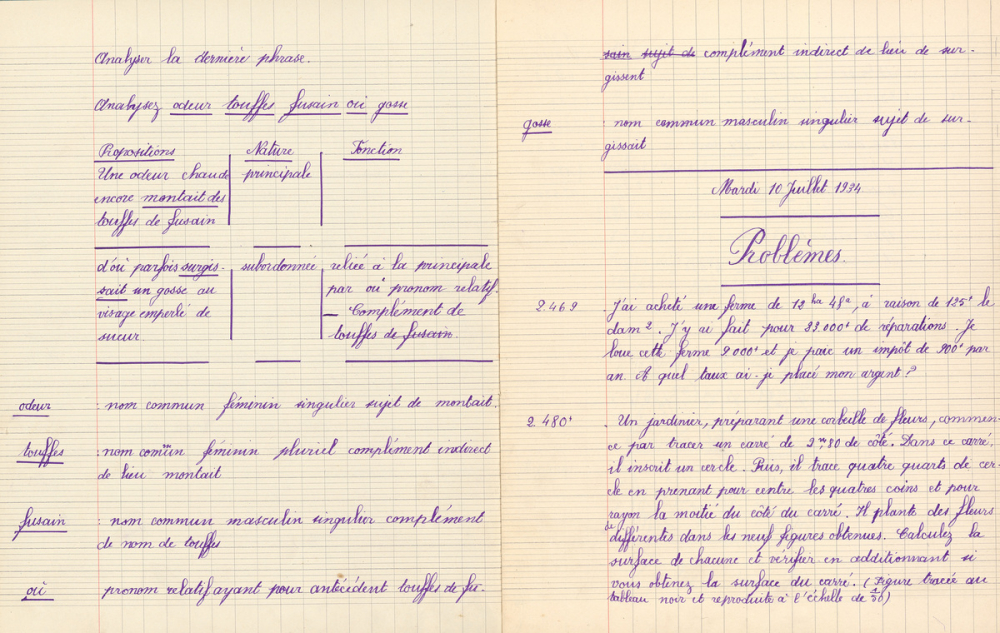 Analyser la dernière phrase.
Analysez odeur touffes fusain où gosse
Propositions Nature Fonction
Une odeur chaude principale
encore montait des
touffes de fusain
d'où parfois surgis- subordonnée reliée à la principale
sait un gosse au par où pronom relatif.
visage emperlé de – Complément de
sueur. touffes de fusain.
odeur : nom commun féminin singulier sujet de montait.
touffes : nom commun féminin pluriel complément indirect
de lieu montait
fusain : nom commun masculin singulier complément
de nom de touffes
où : pronom relatif ayant pour antécédent touffes de fu-
sain sujet de complément indirect de lieu de sur-
gissent
gosse : nom commun masculin singulier sujet de sur-
gissait
Mardi 10 Juillet 1934
Problèmes.
2469 J'ai acheté une ferme de 12 ha 48a, à raison de 125f le
dam². J'y ai fait pour 33.000f de réparations. Je
loue cette ferme 9 000f et je paie un impôt de 900f par
an. A quel taux ai-je placé mon argent ?
2480 Un jardinier, préparant une corbeille de fleurs, commen-
ce par tracer un carré de 2m,80 de côté. Dans ce carré,
il inscrit un cercle. Puis, il trace quatre quarts de cer-
cle en prenant pour centre les quatres coins et pour
rayon la moitié du côté du carré. Il plante des fleurs
différentes dans les neuf figures obtenues. Calculez la
surface de chacune et vérifier en additionnant si
vous obtenez la surface du carré. (Figure tracée au
tableau noir et reproduite à l'échelle de 1/50)